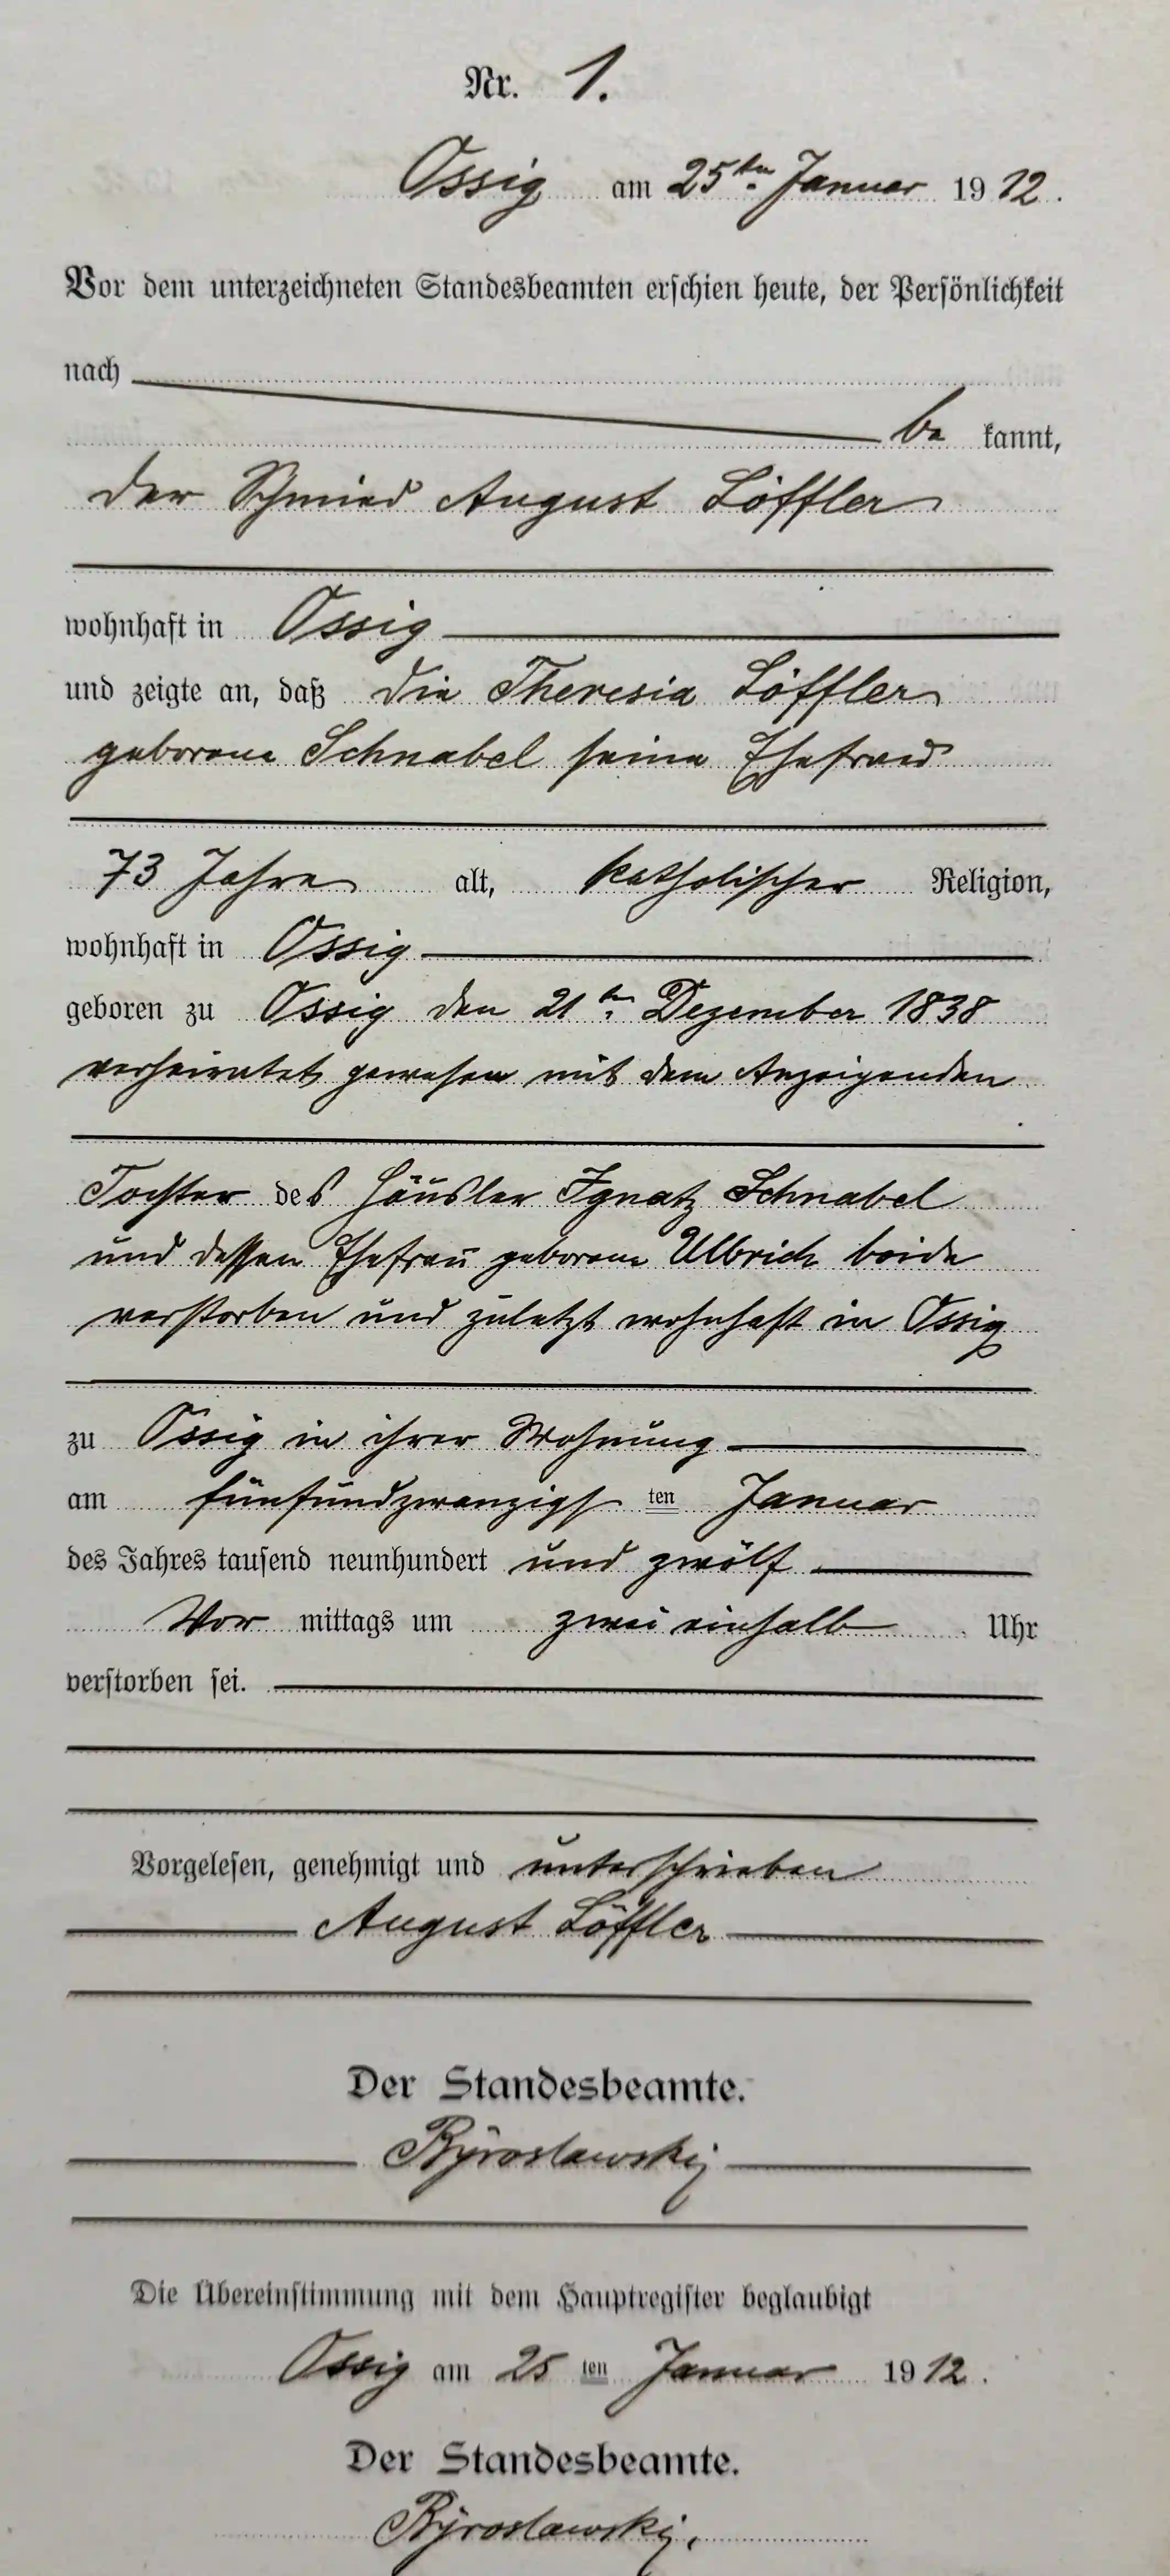 Nr. 1.
Ossig am 25ten Januar 1912.
Vor dem unterzeichneten Standesbeamten erschien heute, der Persönlichkeit
nach
be kannt,
der Schmied August Löffler
wohnhaft in Ossig
und zeigte an, daß die Theresia Löffler
geborene Schnabel seine Ehefrau
73 Jahre alt, katholischer Religion,
wohnhaft in Ossig
geboren zu Ossig den 21ten Dezember 1838
verheiratet gewesen mit dem Anzeigenden
Tochter des Häusler Ignatz Schnabel
und dessen Ehefrau geborene Ulbrich beide
verstorben und zuletzt wohnhaft in Ossig
zu Ossig in ihrer Wohnung
am fünfundzwanzigs ten Januar
des Jahres tausend neunhundert und zwölf
Vor mittags um zwei einhalb Uhr
verstorben sei.
Vorgelesen, genehmigt und unterschrieben
August Löffler
Der Standesbeamte.
Die Übereinstimmung mit dem Hauptregister beglaubigt
Ossig am 25 ten Januar 1912.
Der Standesbeamte.